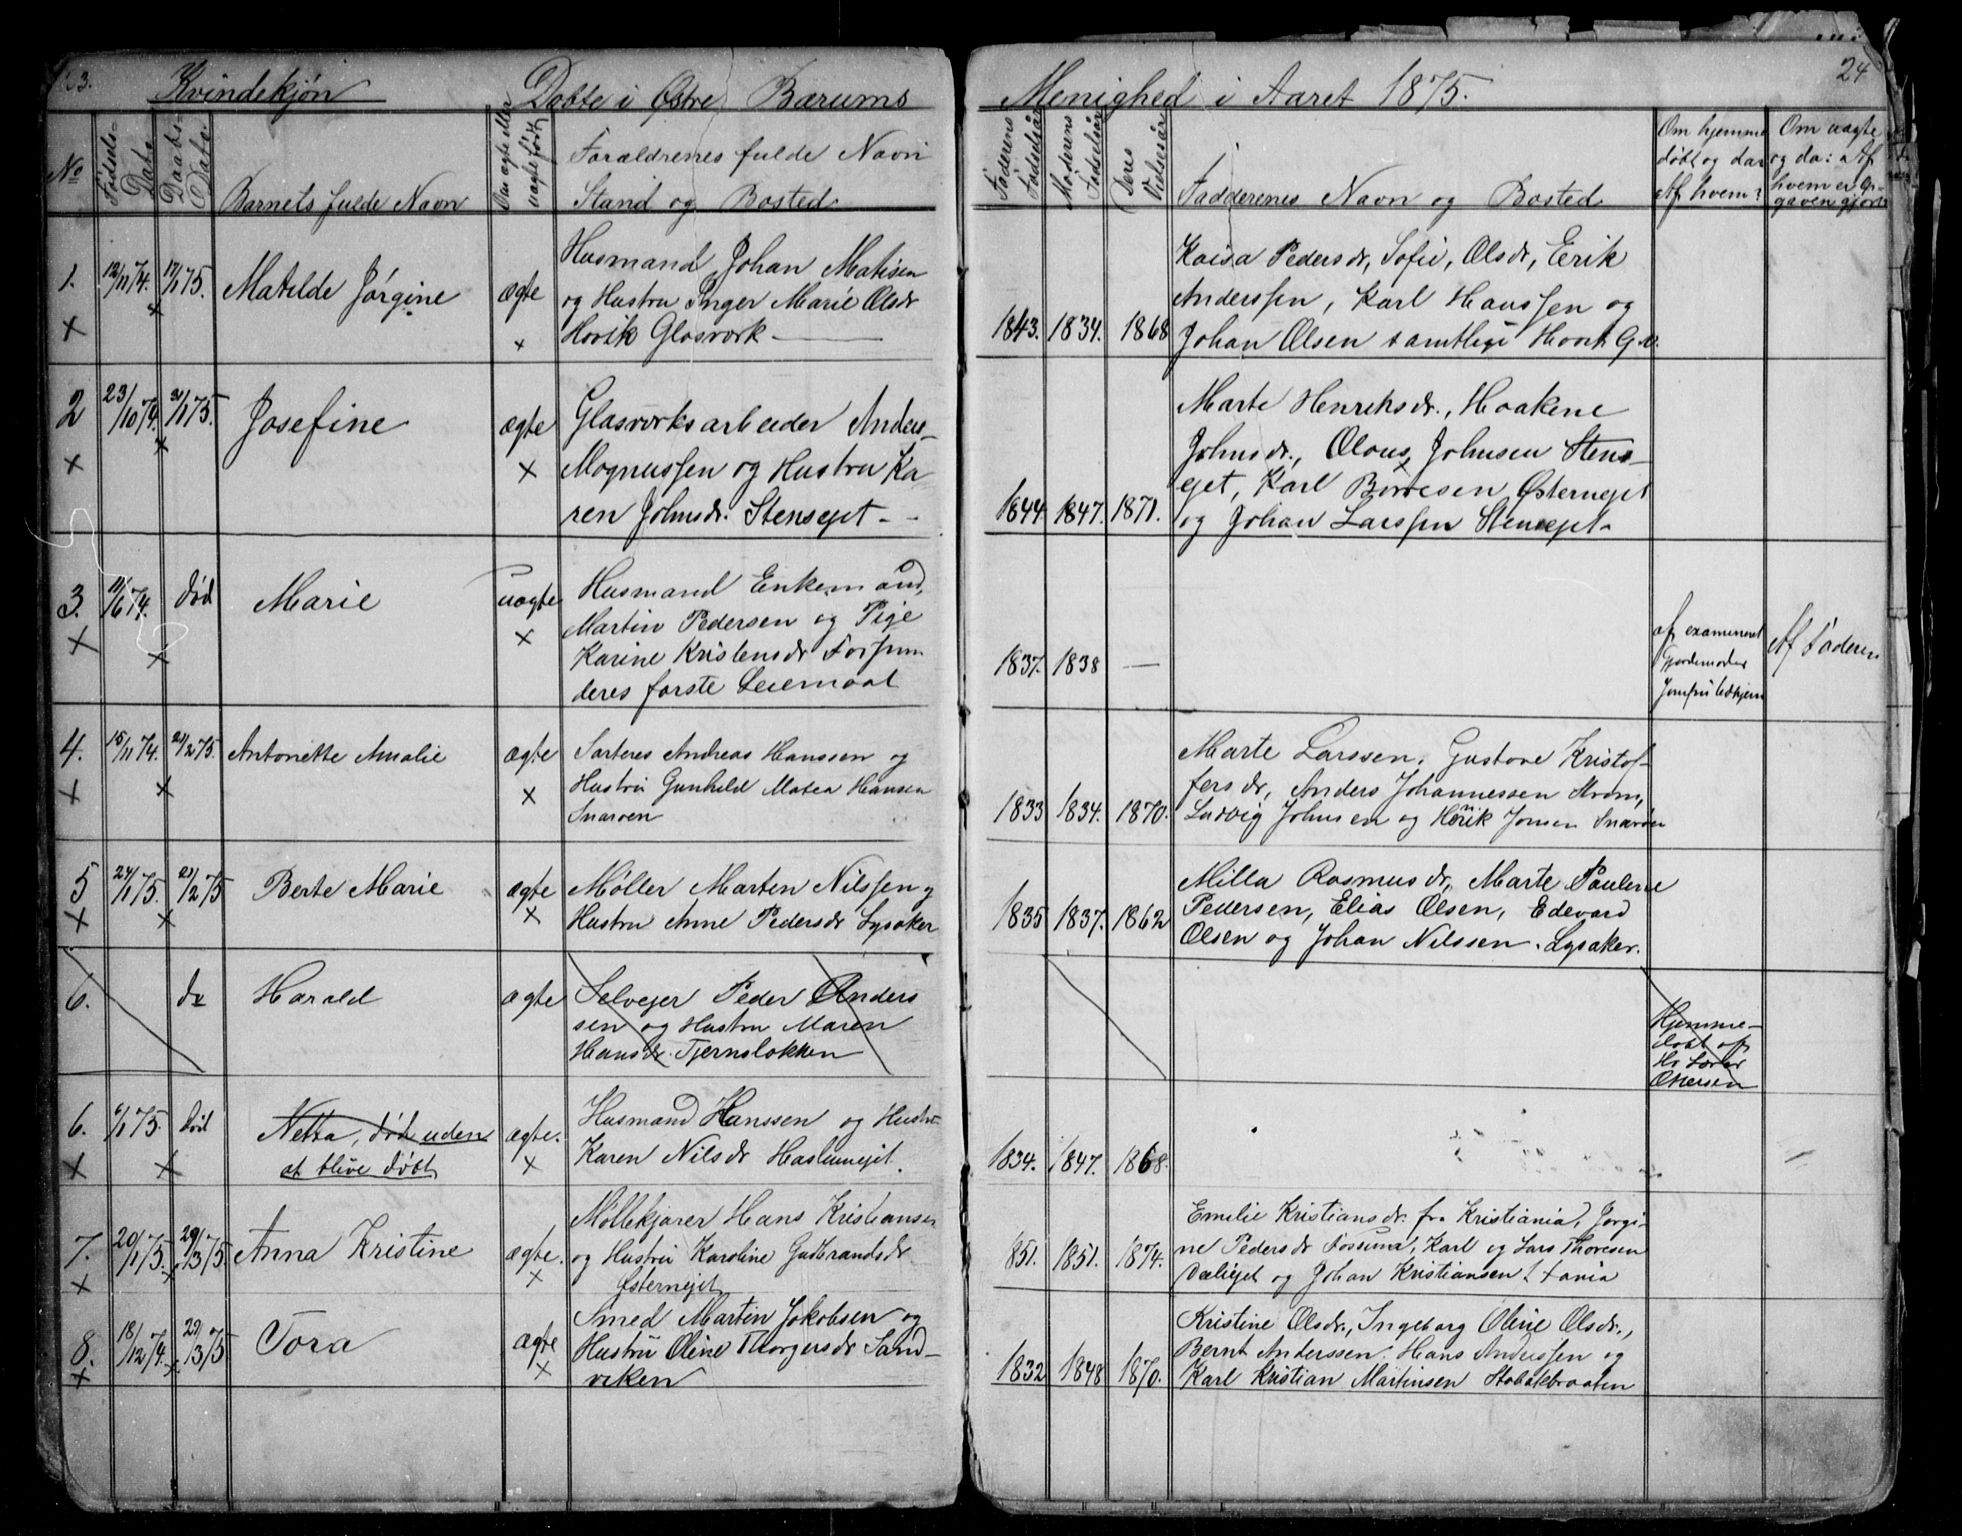 Kvindekjøn Døbte i Østre Bærums Menighed i Aaret 1875. 24
No
Fødsels-
Dato
Daabs-
Dato
Barnets fulde Navn
Om ægte eller
uægte født
Forældrenes fulde Navn
Stand og Bosted
Faderens
Fødselsår
Moderens
Fødselsår
Deres
Vielsesår
Faddernes Navn og Bosted
Om hjemme
døbt og da:
Af hvem?
Om uægte
og da: Af
hvem er Op-
gaven gjort
1. 12/11 74. 17/1 75. Matilde Jørgine ægte
Husmand Johan Matisen
og Hustru Inger Marie Olsdr
Hovik Glasværk
1843. 1834. 1868
Kaisa Pedersdr, Sofie, Olsdr, Erik
Anderssen, Karl Hanssen og
Johan Olsen samtlige Hovik G.v.
2 23/10 74. 31/1 75. Josefine ægte
Glasværksarbeider Anders
Magnussen og Hustru Ka
ren Johnsdr. Stensejet
1844 1847. 1871.
Marte Henriksdr., Haakene
Johnsdr., Olous, Johnsen Stens-
ejet, Karl Børresen Østernejet
og Johan Larssen Stensejet
3. 11/6 74. død Marie uægte
Husmand Enkemand,
Martin Pedersen og Pige
Karine Kristensdr Fossum
deres første Leiemaal
1837. 1838 —
af examineret
Gjordemoder
Jomfru
Af Faderen
4. 15/11 74. 21/2 75. Antonette Amalie ægte
Andreas Hanssen og
Hustru Gunhild Matea Hansen
Snarøen
1833 1834. 1870.
Marte Larssen, Gustave Kristof-
fersdr, Anders Johannessen Strøm,
Ludvig Johnsen og Henrik Jonsen Snarøen
5 24/1 75. 21/2 75 Berte Marie ægte
Møller Marten Nilssen og
Hustru Anne Pedersdr Lysaker
1835 1837. 1862
Milla Rasmusdr, Marte Pauline
Pedersen, Elias Olsen, Edevard
Olsen og Johan Nilssen. Lysaker.
6. Harald ægte
Selvejer Peder Anders
sen og Hustru Maren
Hansdr. Tjernsløkken
Hjemme-
døbt af
Hr Lærer
Ottersen
6. 6/1 75. død Netta, død uden
at blive døbt
ægte.
Husmand Hanssen og Hustru
Karen Nilsdr Haslumejet.
1834. 1847. 1868.
7. 20/1 75. 29/3 75 Anna Kristine ægte.
Møllekjører Hans Kristiansen
og Hustru Karoline Gudbrandsdr
Østernejet
1851. 1851. 1874.
Emilie Kristiansdr. fra Kristiania, Jørgi-
ne Pedersdr Fossum, Karl og Lars Thoresen
Dæliejet og Johan Kristiansen
8. 18/12 74. 29/3 75 Tora ægte
Smed Martin Jakobsen og
Hustru Oline Thorgersdr Sand-
viken
1832 1848 1870.
Kristine Olsdr., Ingeborg Oline Olsdr.,
Bernt Anderssen. Hans Anderssen og
Karl Kristian Martinsen Stabækbraaten